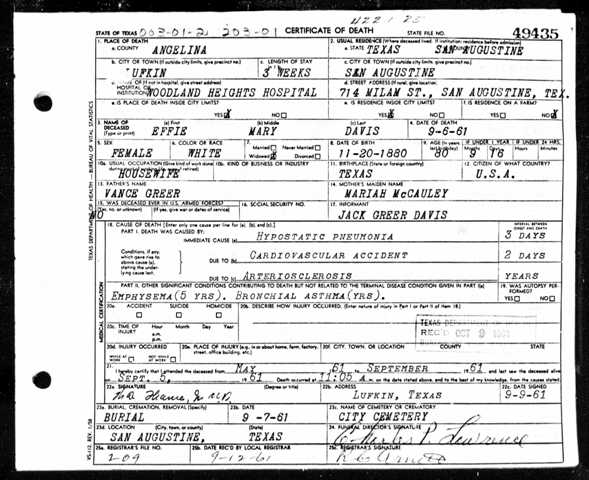 4221 25
STATE OF TEXAS 003-01-2 203-01 CERTIFICATE OF DEATH STATE FILE NO. 49435
1. PLACE OF DEATH 2. USUAL RESIDENCE (Where deceased lived. If institution: residence before admission)
a. COUNTY ANGELINA a. STATE TEXAS b. COUNTY SAN AUGUSTINE
b. CITY OR TOWN (If outside city limits, give precinct no.) c. LENGTH OF STAY c. CITY OR TOWN (If outside city limits, give precinct no.)
UFKIN 3 WEEKS SAN AUGUSTINE
(If not in hospital, give street address) d. STREET ADDRESS (If rural, give location)
HOSPITAL OR INSTITUTION WOODLAND HEIGHTS HOSPITAL 714 MILAM ST., SAN AUGUSTINE, TEX.
e. IS PLACE OF DEATH INSIDE CITY LIMITS? e. IS RESIDENCE INSIDE CITY LIMITS? f. IS RESIDENCE ON A FARM?
YES X NO YES X NO YES NO
3. NAME OF DECEASED (Type or print) (a) First (b) Middle (c) Last 4. DATE OF DEATH
EFFIE MARY DAVIS 9-6-61
5. SEX 6. COLOR OR RACE 7. Married Never Married 8. DATE OF BIRTH 9. AGE (In years last birthday) IF UNDER 1 YEAR IF UNDER 24 HRS.
FEMALE WHITE Widowed X Divorced 11-20-1880 80 9 16
10a. USUAL OCCUPATION (Give kind of work done 10b. KIND OF BUSINESS OR INDUSTRY 11. BIRTHPLACE (State or foreign country) 12. CITIZEN OF WHAT COUNTRY?
HOUSEWIFE TEXAS U.S.A.
13. FATHER'S NAME 14. MOTHER'S MAIDEN NAME
VANCE GREER MARIAH MCCAULEY
15. WAS DECEASED EVER IN U.S. ARMED FORCES? 16. SOCIAL SECURITY NO. 17. INFORMANT
NO (Yes, no, or unknown) (If yes, give war or dates of service) JACK GREER DAVIS
18. CAUSE OF DEATH (Enter only one cause per line for (a), (b), and (c).) INTERVAL BETWEEN ONSET AND DEATH
PART I. DEATH WAS CAUSED BY:
IMMEDIATE CAUSE (a) HYPOSTATIC PNEUMONIA 3 DAYS
Conditions, if any, which gave rise to above cause (a), stating the underlying cause last.
DUE TO (b) CARDIOVASCULAR ACCIDENT 2 DAYS
DUE TO (c) ARTERIOSCLEROSIS YEARS
PART II. OTHER SIGNIFICANT CONDITIONS CONTRIBUTING TO DEATH BUT NOT RELATED TO THE TERMINAL DISEASE CONDITION GIVEN IN PART I(a) 19. WAS AUTOPSY PERFORMED?
EMPHYSEMA (5 YRS). BRONCHIAL ASTHMA (YRS). YES NO
20a. ACCIDENT SUICIDE HOMICIDE 20b. DESCRIBE HOW INJURY OCCURRED. (Enter nature of injury in Part I or Part II of item 18.)
20c. TIME OF INJURY Hour Month Day Year a.m. p.m.
TEXAS
REC'D OCT 9 1961
20d. INJURY OCCURRED 20e. PLACE OF INJURY (e.g. in or about home, farm, factory, street, office building, etc.) 20f. CITY, TOWN, OR LOCATION COUNTY STATE
WHILE AT WORK NOT WHILE AT WORK
21. I hereby certify that I attended the deceased from MAY 61 to SEPTEMBER 61 and last saw the deceased alive
on SEPT. 5, 1961 Death occurred at 11:05 A.m. on the date stated above, and to the best of my knowledge, from the causes stated.
22a. SIGNATURE (Degree or title) 22b. ADDRESS 22c. DATE SIGNED
M.D. LUFKIN, TEXAS 9-9-61
23a. BURIAL, CREMATION, REMOVAL (Specify) 23b. DATE 23c. NAME OF CEMETERY OR CREMATORY
BURIAL 9-7-61 CITY CEMETERY
23d. LOCATION (City, town, or county) (State) 24. FUNERAL DIRECTOR'S SIGNATURE
SAN AUGUSTINE, TEXAS Charles P. Lawrence
25a. REGISTRAR'S FILE NO. 25b. DATE REC'D BY LOCAL REGISTRAR 25c. REGISTRAR'S SIGNATURE
209 9-12-61
TEXAS DEPARTMENT OF HEALTH — BUREAU OF VITAL STATISTICS
MEDICAL CERTIFICATION
VS-112 REV. 1/58